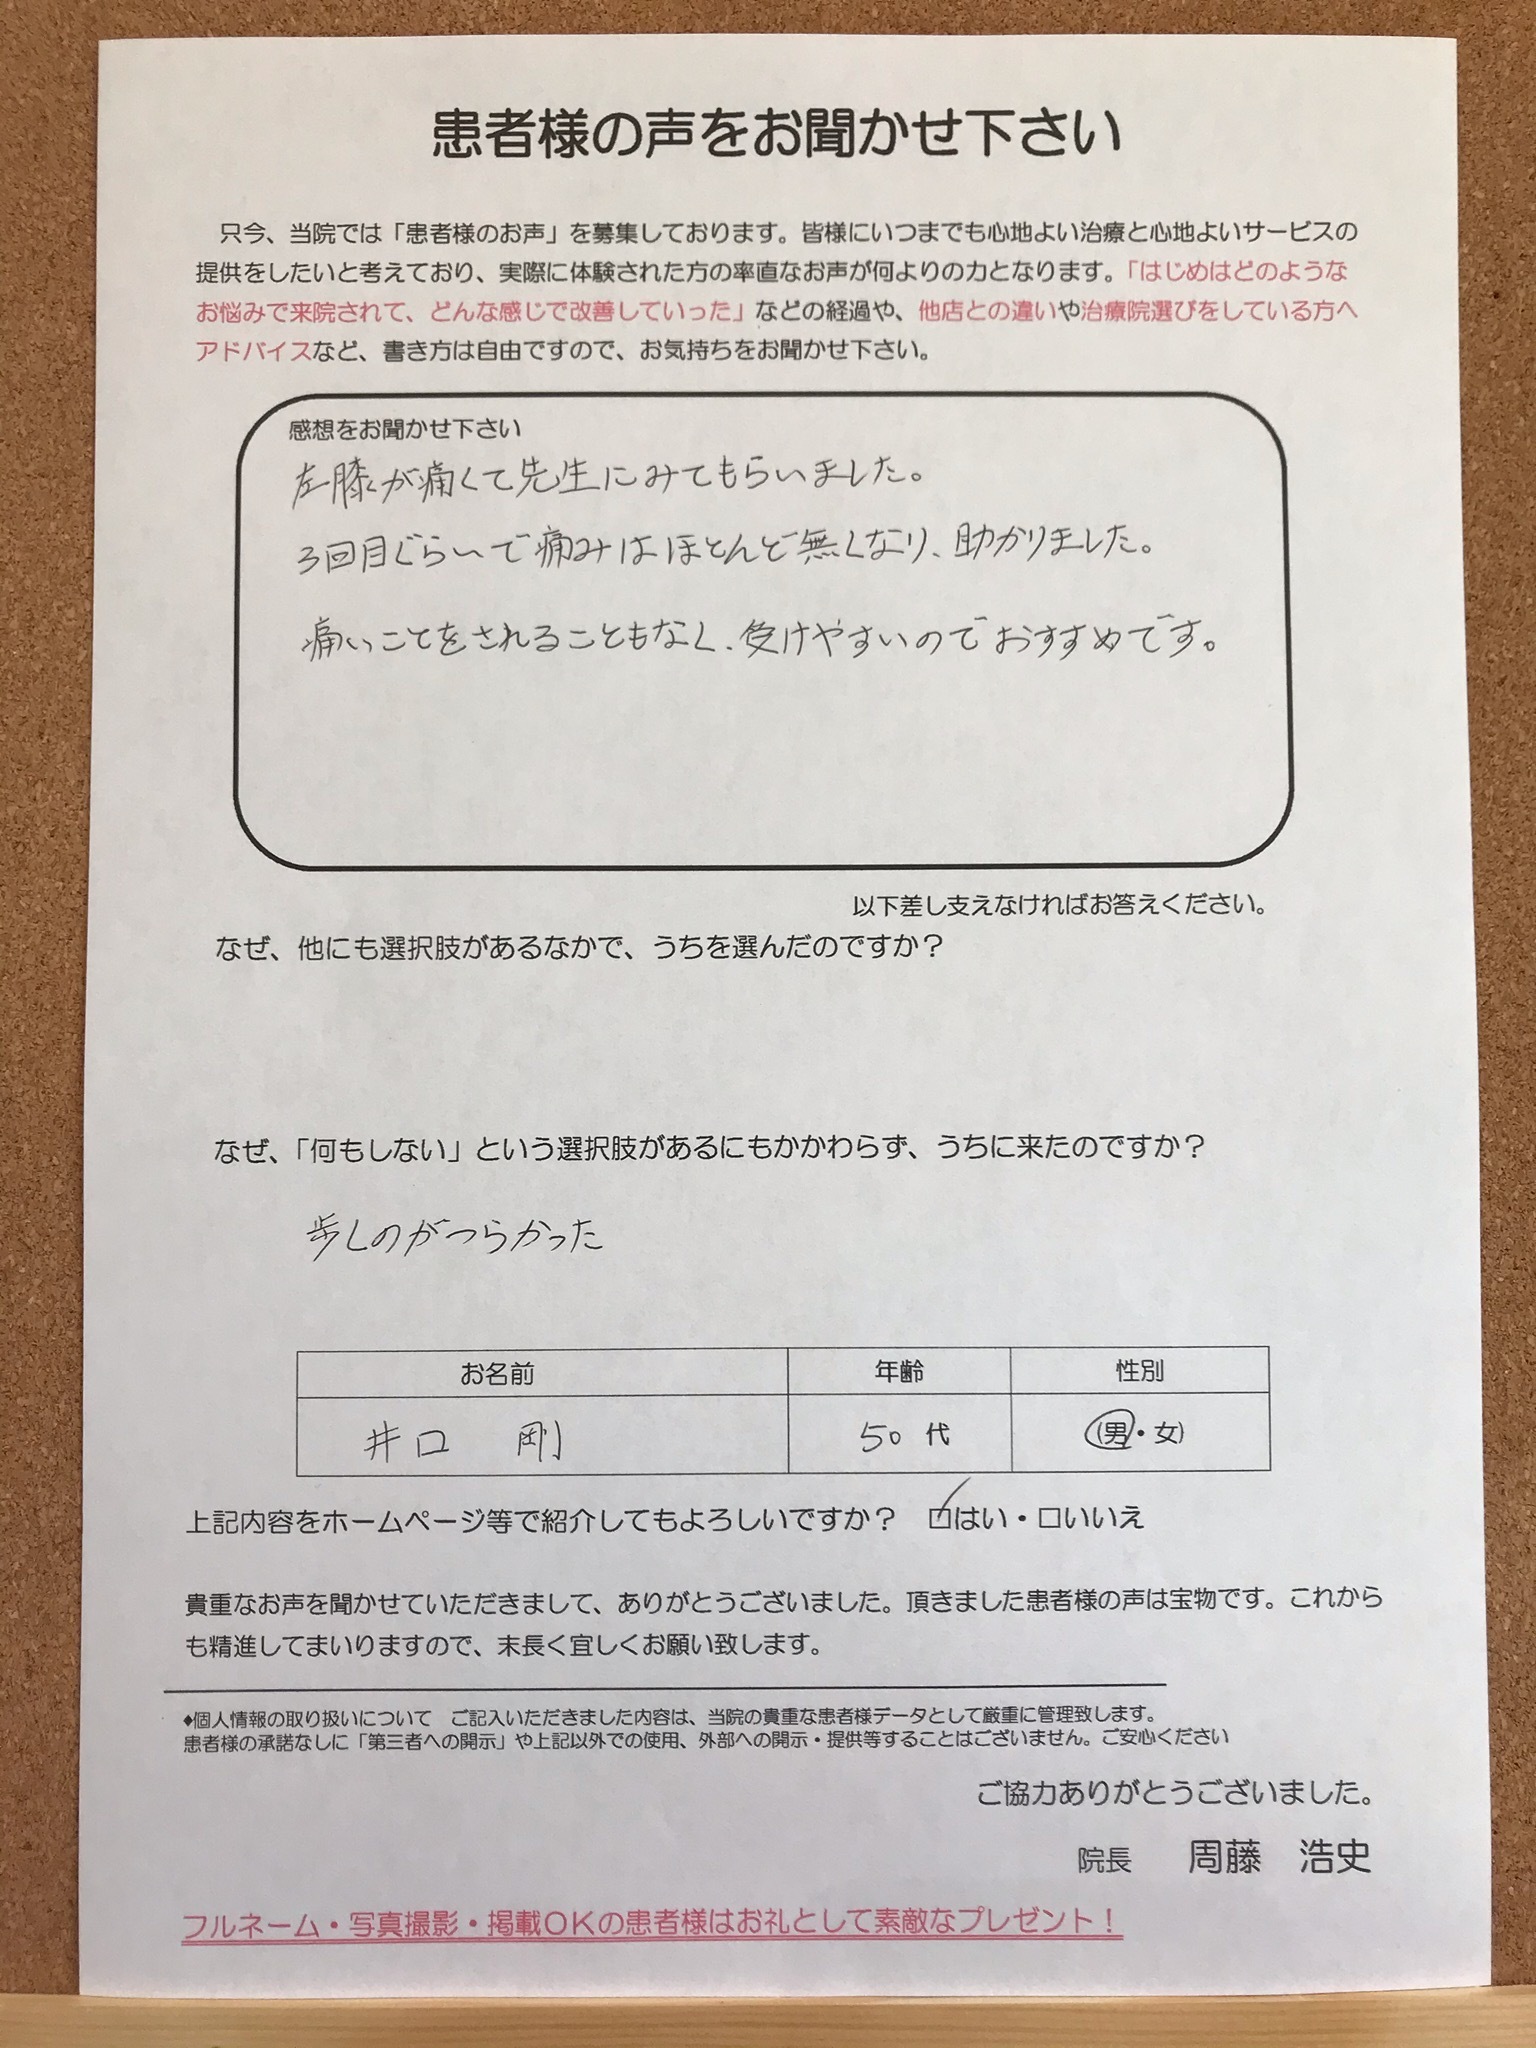 患者様の声をお聞かせ下さい
只今、当院では「患者様のお声」を募集しております。皆様にいつまでも心地よい治療と心地よいサービスの
提供をしたいと考えており、実際に体験された方の率直なお声が何よりの力となります。「はじめはどのような
お悩みで来院されて、どんな感じで改善していった」などの経過や、他店との違いや治療院選びをしている方へ
アドバイスなど、書き方は自由ですので、お気持ちをお聞かせ下さい。
感想をお聞かせ下さい
左膝が痛くて先生にみてもらいました。
3回目ぐらいで痛みはほとんど無くなり、助かりました。
痛いことをされることもなく、受けやすいのでおすすめです。
以下差し支えなければお答えください。
なぜ、他にも選択肢があるなかで、うちを選んだのですか？
なぜ、「何もしない」という選択肢があるにもかかわらず、うちに来たのですか？
歩くのがつらかった
お名前 年齢 性別
井口 剛 50代 (男・女)
上記内容をホームページ等で紹介してもよろしいですか？ ☑はい・□いいえ
貴重なお声を聞かせていただきまして、ありがとうございました。頂きました患者様の声は宝物です。これから
も精進してまいりますので、末長く宜しくお願い致します。
◆個人情報の取り扱いについて ご記入いただきました内容は、当院の貴重な患者様データとして厳重に管理致します。
患者様の承諾なしに「第三者への開示」や上記以外での使用、外部への開示・提供等することはございません。ご安心ください
ご協力ありがとうございました。
院長 周藤 浩史
フルネーム・写真撮影・掲載OKの患者様はお礼として素敵なプレゼント！